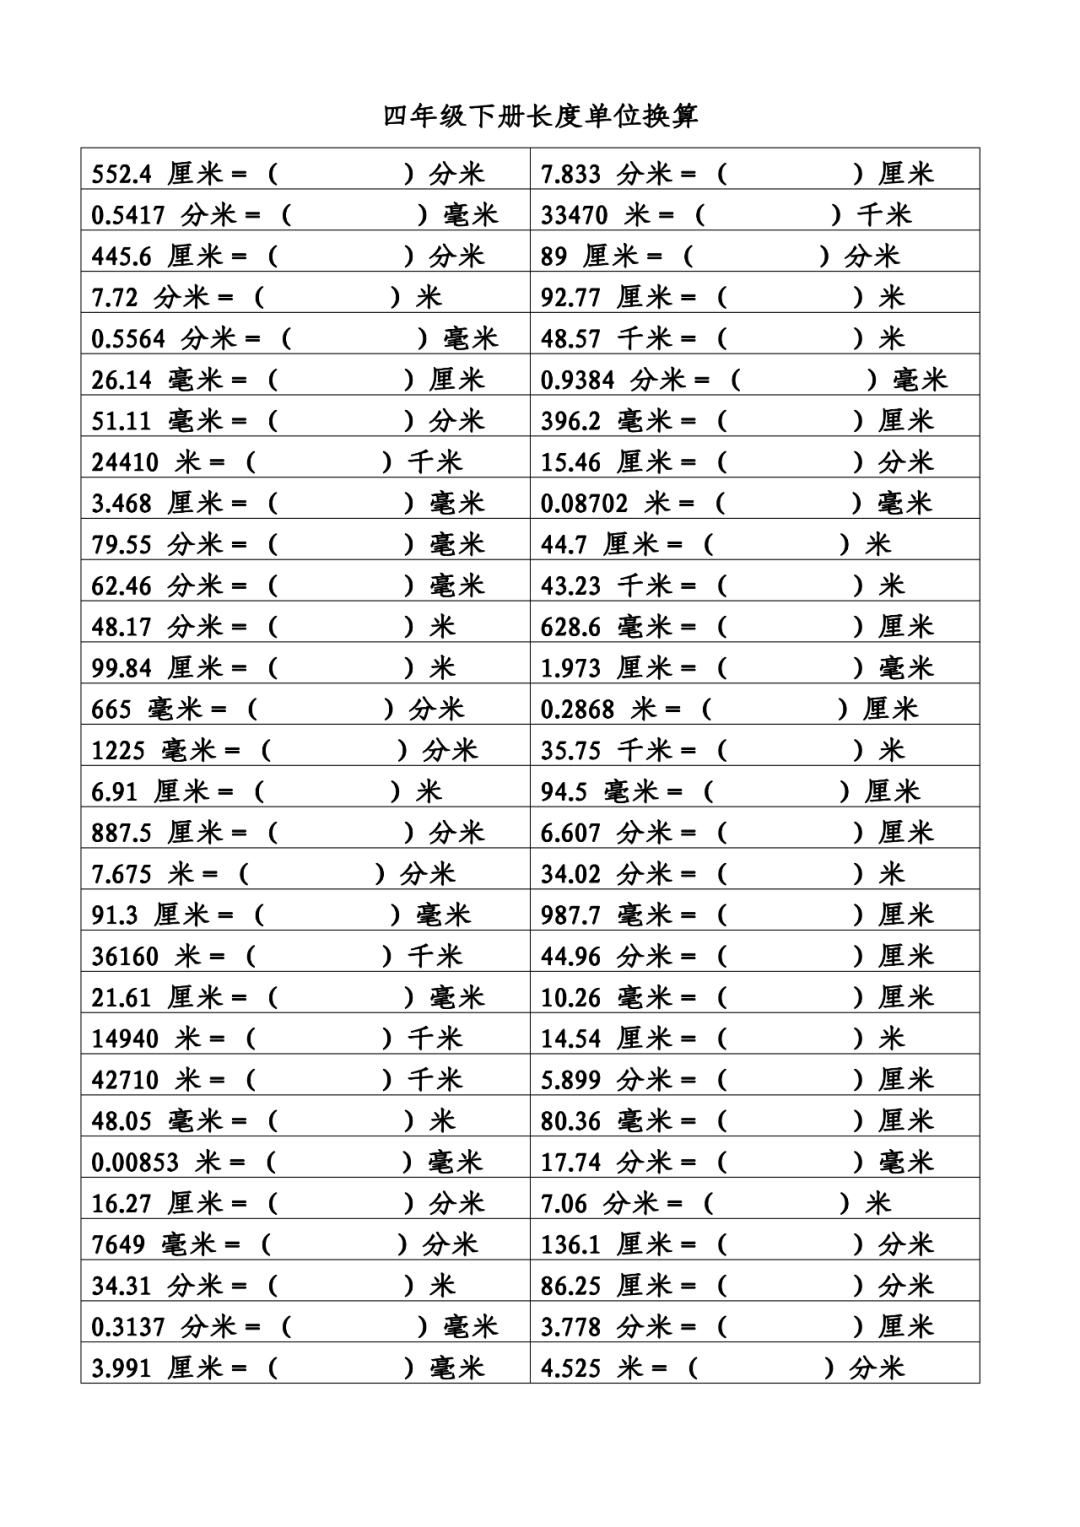 四年级下册长度单位换算
552.4 厘米 =（ ）分米 7.833 分米 =（ ）厘米
0.5417 分米 =（ ）毫米 33470 米 =（ ）千米
445.6 厘米 =（ ）分米 89 厘米 =（ ）分米
7.72 分米 =（ ）米 92.77 厘米 =（ ）米
0.5564 分米 =（ ）毫米 48.57 千米 =（ ）米
26.14 毫米 =（ ）厘米 0.9384 分米 =（ ）毫米
51.11 毫米 =（ ）分米 396.2 毫米 =（ ）厘米
24410 米 =（ ）千米 15.46 厘米 =（ ）分米
3.468 厘米 =（ ）毫米 0.08702 米 =（ ）毫米
79.55 分米 =（ ）毫米 44.7 厘米 =（ ）米
62.46 分米 =（ ）毫米 43.23 千米 =（ ）米
48.17 分米 =（ ）米 628.6 毫米 =（ ）厘米
99.84 厘米 =（ ）米 1.973 厘米 =（ ）毫米
665 毫米 =（ ）分米 0.2868 米 =（ ）厘米
1225 毫米 =（ ）分米 35.75 千米 =（ ）米
6.91 厘米 =（ ）米 94.5 毫米 =（ ）厘米
887.5 厘米 =（ ）分米 6.607 分米 =（ ）厘米
7.675 米 =（ ）分米 34.02 分米 =（ ）米
91.3 厘米 =（ ）毫米 987.7 毫米 =（ ）厘米
36160 米 =（ ）千米 44.96 分米 =（ ）厘米
21.61 厘米 =（ ）毫米 10.26 毫米 =（ ）厘米
14940 米 =（ ）千米 14.54 厘米 =（ ）米
42710 米 =（ ）千米 5.899 分米 =（ ）厘米
48.05 毫米 =（ ）米 80.36 毫米 =（ ）厘米
0.00853 米 =（ ）毫米 17.74 分米 =（ ）毫米
16.27 厘米 =（ ）分米 7.06 分米 =（ ）米
7649 毫米 =（ ）分米 136.1 厘米 =（ ）分米
34.31 分米 =（ ）米 86.25 厘米 =（ ）分米
0.3137 分米 =（ ）毫米 3.778 分米 =（ ）厘米
3.991 厘米 =（ ）毫米 4.525 米 =（ ）分米